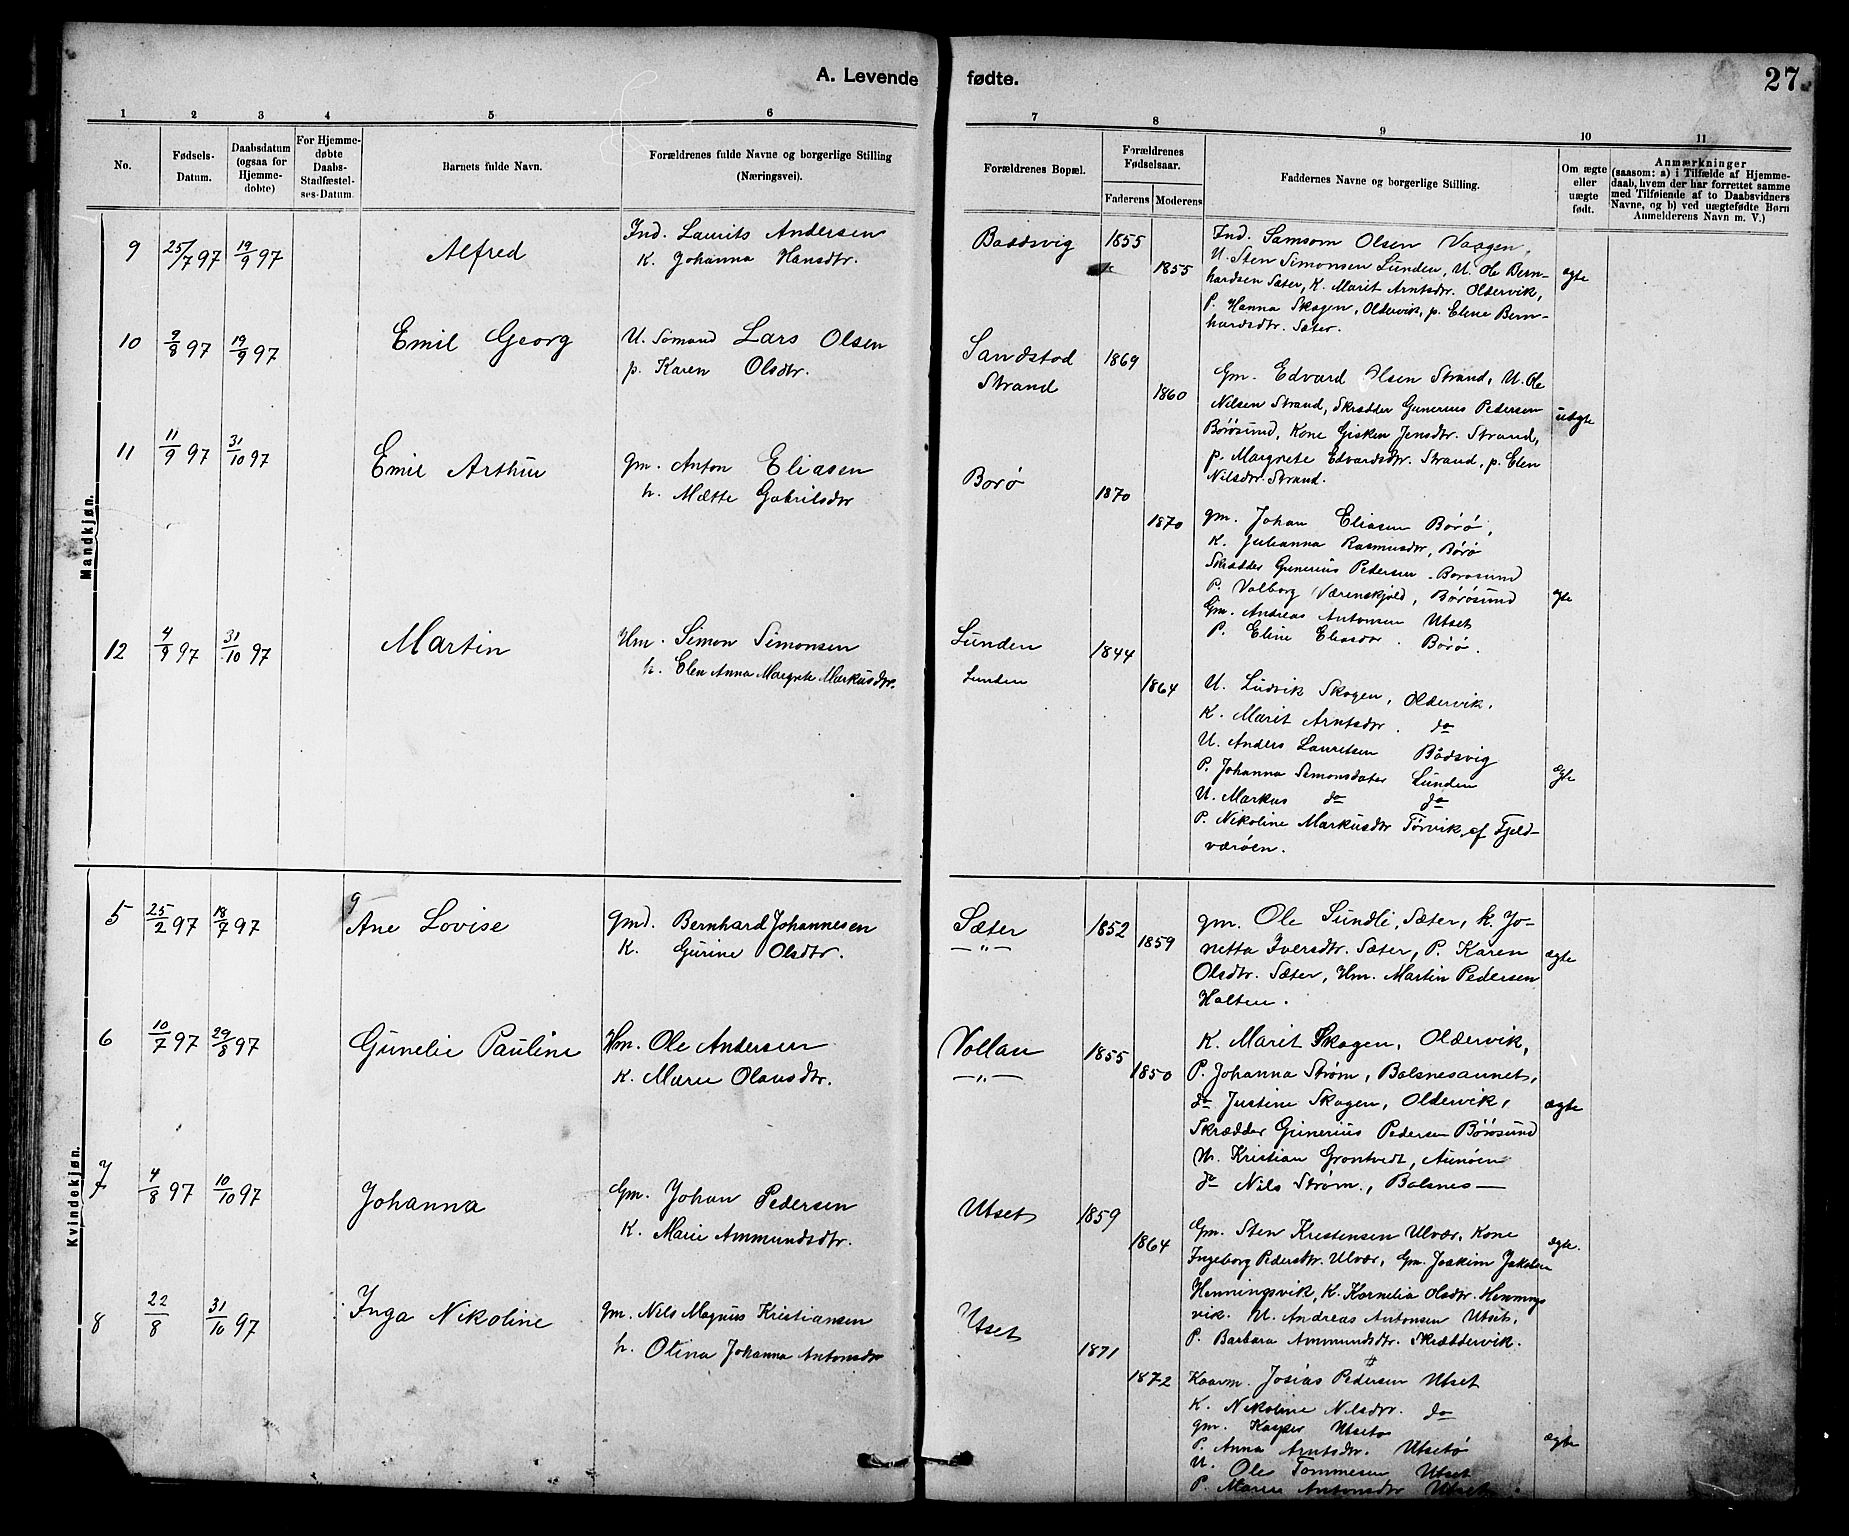 A. Levende fødte. 27.
1 2 3 4 5 6 7 8 9 10 11
No.
Fødsels-
Datum.
Daabsdatum
(ogsaa for
Hjemme-
døbte)
For Hjemme-
døbte
Daabs-
Stadfæstel-
ses-Datum.
Barnets fulde Navn.
Forældrenes fulde Navne og borgerlige Stilling
(Næringsvei).
Forældrenes Bopæl.
Forældrenes
Fødselsaar.
Faderens Moderens
Faddernes Navne og borgerlige Stilling.
Om ægte
eller
uægte
født.
Anmærkninger
(saasom: a) i Tilfælde af Hjemme-
daab, hvem der har forrettet samme
med Tilføiende af to Daabsvidners
Navne, og b) ved uægtefødte Børn
Anmelderens Navn m. V.)
Mandkjøn.
9 25/7 97 19/9 97 Alfred
Ind. Laurits Andersen
K. Johanna Hansdtr.
Badsvig 1855
1855
Ind. Samson Olsen Vaagen,
U. Sten Simonsen Lunden, U. Ole Bern-
hardsen Sæter, K. Marit Arntsdtr. Oldervik,
P. Hanna Skagen, Oldervik, p. Eline Bern-
hardsdtr. Sæter.
ægte
10 9/8 97 19/9 97 Emil Georg
U. Sømand Lars Olsen
p. Karen Olsdtr.
Sandstad 1869
Strand 1860
Gm. Edvard Olsen Strand, U. Ole
Nilsen Strand, Skrædder Gunerius Pedersen
Børøsund, Kone Gisken Jensdtr. Strand,
p. Margrete Edvardsdtr. Strand, p. Elen
Nilsdtr. Strand.
uægte
11 11/9 97 31/10 97 Emil Arthur
gm. Anton Eliasen
h. Mætte Gabrilsdtr
Borø 1870
1870
gm. Johan Eliasen Børø,
K. Julianna Rasmusdtr, Børø
Skrædder Gunerius Pedersen. Borosund
P. Valborg Værenskjold, Børøsund
Gm. Andreas Antonsen Utset
P. Eline Eliasdtr. Børø.
ægte
12 4/9 97 31/10 97 Martin
Hm. Simon Simonsen
h. Elen Anna Margrete Markusdtr.
Lunden 1844
Lunden 1864
U. Ludvik Skagen, Oldervik.
K. Marit Arntsdtr. do
U. Anders Lauritsen Bådsvig
P. Johanna Simonsdater Lunden
U. Markus do do
P. Nikoline Markusdtr Tørvik, af Fjeld-
værøen.
ægte
Kvindekjøn.
5 25/2 97 18/7 97 Ane Lovise
gmd. Bernhard Johannesen
K. Gurine Olsdtr.
Sæter 1852
— " — 1859
gm. Ole Sundli, Sæter, k. Jo-
netta Iversdtr. Sæter, P. Karen
Olsdtr. Sæter, Hm. Martin Pedersen
Holten.
ægte
6 10/7 97 29/8 97 Gunelie Pauline
Hm. Ole Andersen
K. Marie Olausdtr.
Vollan 1855
— " — 1850
K. Marit Skagen, Oldervik,
P. Johanna Strøm, Balsnesaunet,
do Justine Skagen, Oldervik,
Skrædder Gunerius Pedersen Børøsund
U. Kristian Grøntvedt, Aunøen
do Nils Strøm., Balsnes —
ægte
7 4/8 97 10/10 97 Johanna
Gm. Johan Pedersen
K. Marie Ammundsdtr.
Utset 1859
1864
Gm. Sten Kristensen Ulvær, Kone
Ingeborg Pedersdtr. Ulvær, Gm. Joakim Jakobsen
Henningsvik, K. Kornelia Olsdtr. Hennings
vik. U. Andreas Antonsen Utset,
P. Barbara Ammundsdtr. Skrættervik.
ægte.
8 22/8 31/10 97 Inga Nikoline
gm. Nils Magnus Kristiansen
h. Olina Johanna Antonsdtr
Utset 1871
1872
Kaarm. Josias Pedersen Utset
K. Nikoline Nilsdtr. do
gm. Kasper Utsetø
P. Anna Arntsdtr. Utsetø
U. Ole Tommesen Utset
P. Marie Antonsdtr Utset.
ægte